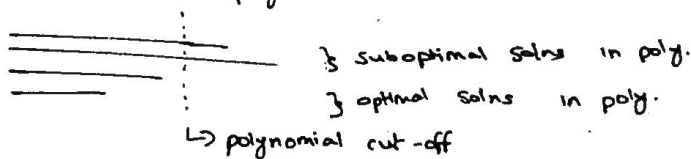 } suboptimal solns in poly.
} optimal solns in poly.
↳ polynomial cut-off